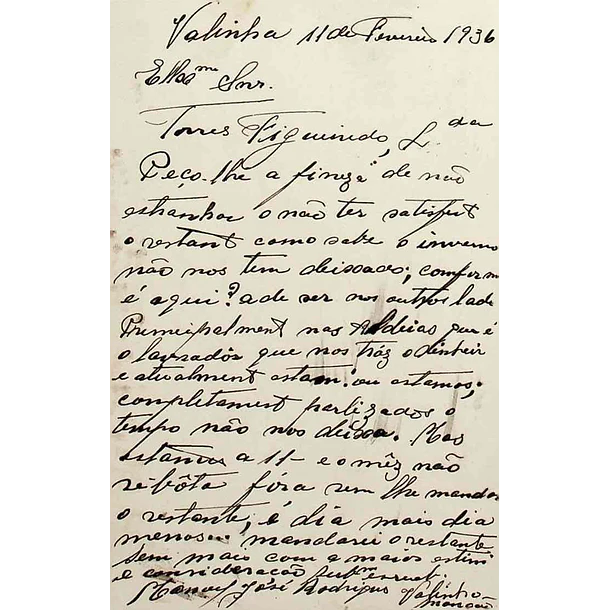 Valinha 11 de Fevereiro 1936
Exmo Snr.
Torres Figueiredo, L.da
Peço-lhe a fineza de não
estranhar o não ter satisfeit
o restant como sabe o inverno
não nos tem deixado; conform
é aqui? a de ser nos outros lade
Prencipalment nas Aldeias que é
o lavrador que nos tráz o dinheir
e atualment estam: ou estamos;
completament parlizados o
tempo não nos deixa. Mas
estamos a 11 - e o mêz não
rebôta fóra sem lhe mandar
o restante, é dia mais dia
menos... mandarei o restante
Sem mais com a maior estim
e consideração
Manoel José Rodrigues Valinho